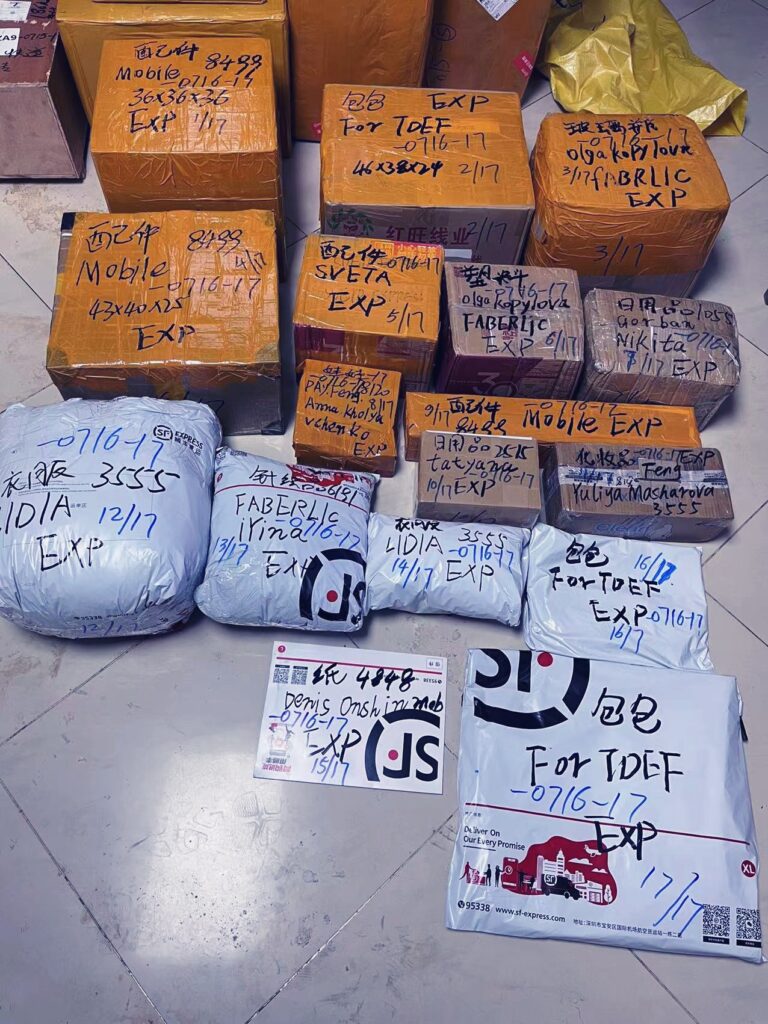 配己件 8499
Mobile -0716-17
36X36X36
EXP 1/17
包包 EXP
For TDEF
-0716-17
46X38X24 2/17
红旺线业
2/17
-0716-17
olga Kopylova
3/17 fABRLIC
EXP
3/17
配己件 8499
4/17
Mobile -0716-17
43X40X25
EXP
配件 -0716-17
SVETA
EXP
5/17
塑料
-0716-17
olga Kopylova
FABERLIC
EXP 6/17
日用品
Gorban
Nikita -0716-17
7/17 EXP
-0716-17
Feng 8/17
Anna Kholya
vchenko
EXP
9/17 配件 Mobile EXP
8499 -0716-17
日用品 2525
tatyana -0716-17
10/17 EXP
化妆品 -0716-17 EXP
Feng
Yuliya Masharova
3555
SF EXPRESS
-0716-17
衣服 3555
LIDIA 12/17
EXP
12/17
FABERLIC
irina -0716-17
13/17 EXP
SF
衣服 3555
LIDIA -0716-17
14/17 EXP
包包 16/17
For TDEF
EXP -0716-17
16/17
纸 4848
Denis Onshin mob
-0716-17
EXP
15/17
SF
SF
包包
For TDEF
-0716-17
EXP
Deliver On
Our Every Promise
17/17
XL
95338 www.sf-express.com